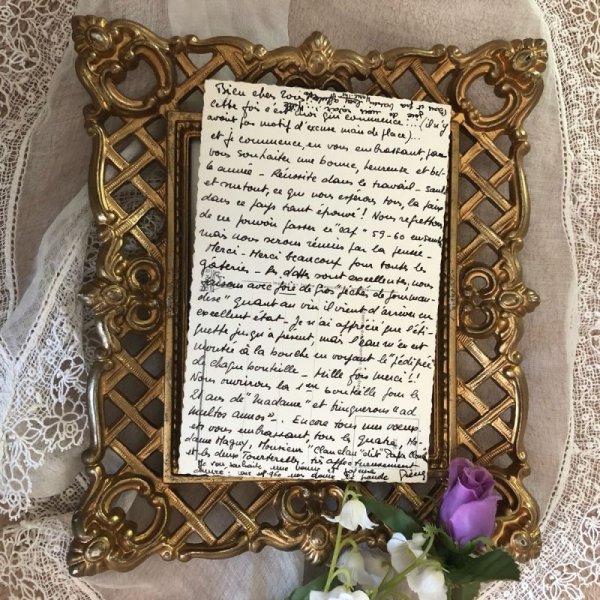 Bien cher tous
cette fois c'est moi qui commence... (il n'y
avait pas motif d'excuse mais de place)...
et je commence, en vous embrassant pour
vous souhaiter une bonne, heureuse et bel-
le année - Réussite dans le travail - santé
et surtout, ce que nous espérons tous, la paix
dans ce pays tant éprouvé! Nous regrettons
de ne pouvoir passer ce cap - 59-60 ensemble
mais nous serons réunis par la pensée -
Merci - Merci beaucoup pour toutes les
gâteries - les dattes sont excellentes, nous
faisons avec joie de gros "péchés de gourman-
dise" quant au vin il vient d'arriver en
excellent état. Je n'ai apprécié que l'éti-
quette jusqu'à présent, mais l'eau m'est
montée à la bouche en voyant le "pédigrée"
de chaque bouteille - Mille fois merci!!
Nous ouvrirons la 1ère bouteille pour les
ans de "Madame" et trinquerons "ad
multos annos"... Encore tous nos voeux
en vous embrassant, tous les quatre, Ma-
dame Maguy, Monsieur "Clauclau" dit Papa
et les deux Tourterelles, très affectueusement
Je vous souhaite une bonne et
année: 1960 une grande